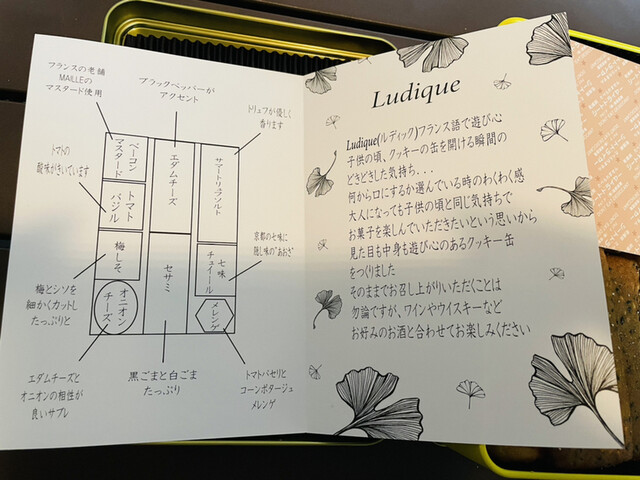 フランスの老舗
MAILLEの
マスタード使用
ブラックペッパーが
アクセント
トリュフが優しく
香ります
トマトの
酸味がきいています
ベーコン
マスタード
エダムチーズ
サマートリュフソルト
トマト
バジル
梅しそ
セサミ
七味
チュイール
京都の七味に
隠し味の"あおさ"
オニオン
チーズ
メレンゲ
梅とシソを
細かくカットし
たっぷりと
エダムチーズと
オニオンの相性が
良いサブレ
黒ごまと白ごま
たっぷり
トマトパセリと
コーンポタージュ
メレンゲ
Ludique
Ludique(ルディック)フランス語で遊び心
子供の頃、クッキーの缶を開ける瞬間の
どきどきした気持ち...
何から口にするか選んでいる時のわくわく感
大人になっても子供の頃と同じ気持ちで
お菓子を楽しんでいただきたいという思いから
見た目も中身も遊び心のあるクッキー缶
をつくりました
そのままでお召し上がりいただくことは
勿論ですが、ワインやウイスキーなど
お好みのお酒と合わせてお楽しみください